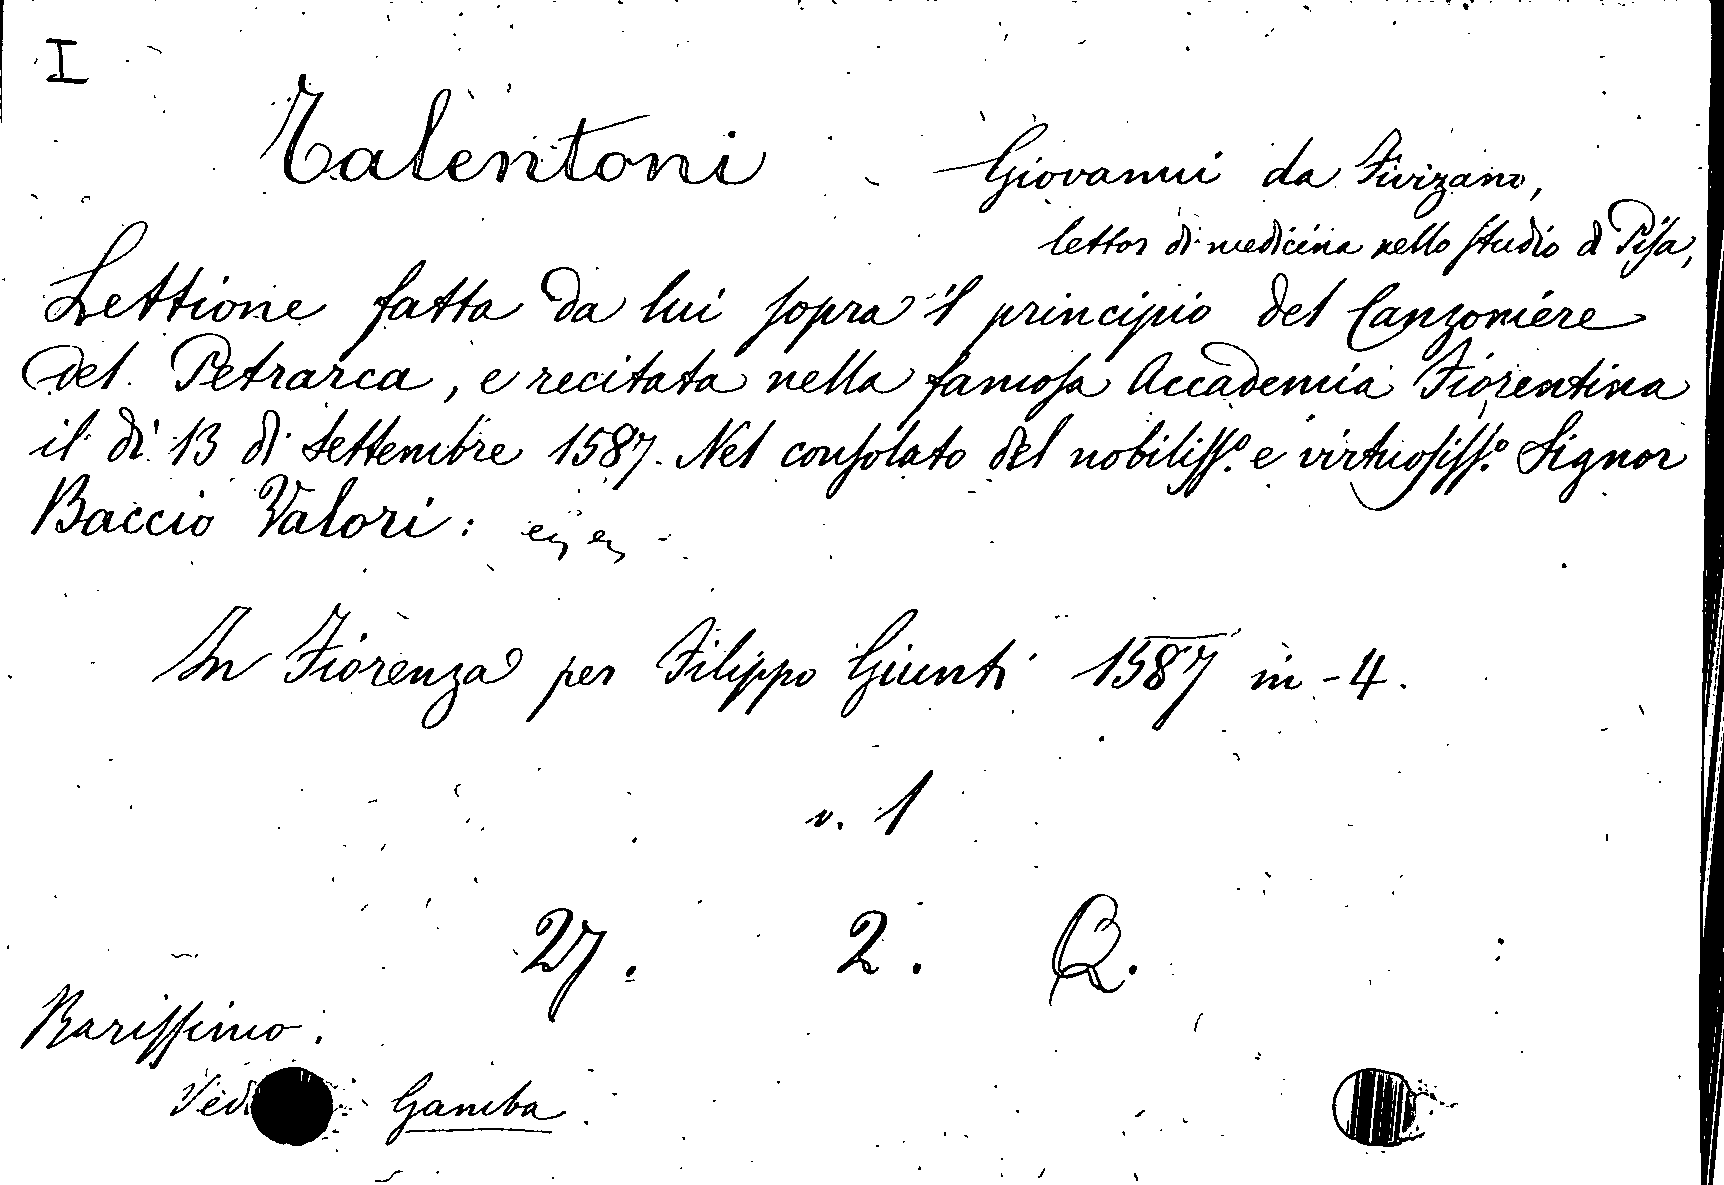 I
Talentoni Giovanni da Fivizano,
lettor di medicina nello studio di Pisa,
Lettione fatta da lui sopra 'l principio del Canzoniere
del Petrarca, e recitata nella famosa Accademia Fiorentina
il di 13 di Settembre 1587. Nel consolato del nobiliss.º e virtuosiss.º Signor
Baccio Valori:
In Fiorenza per Filippo Giunti 1587 in-4.
v. 1
27. 2. Q.
Rarissimo.
Gamba